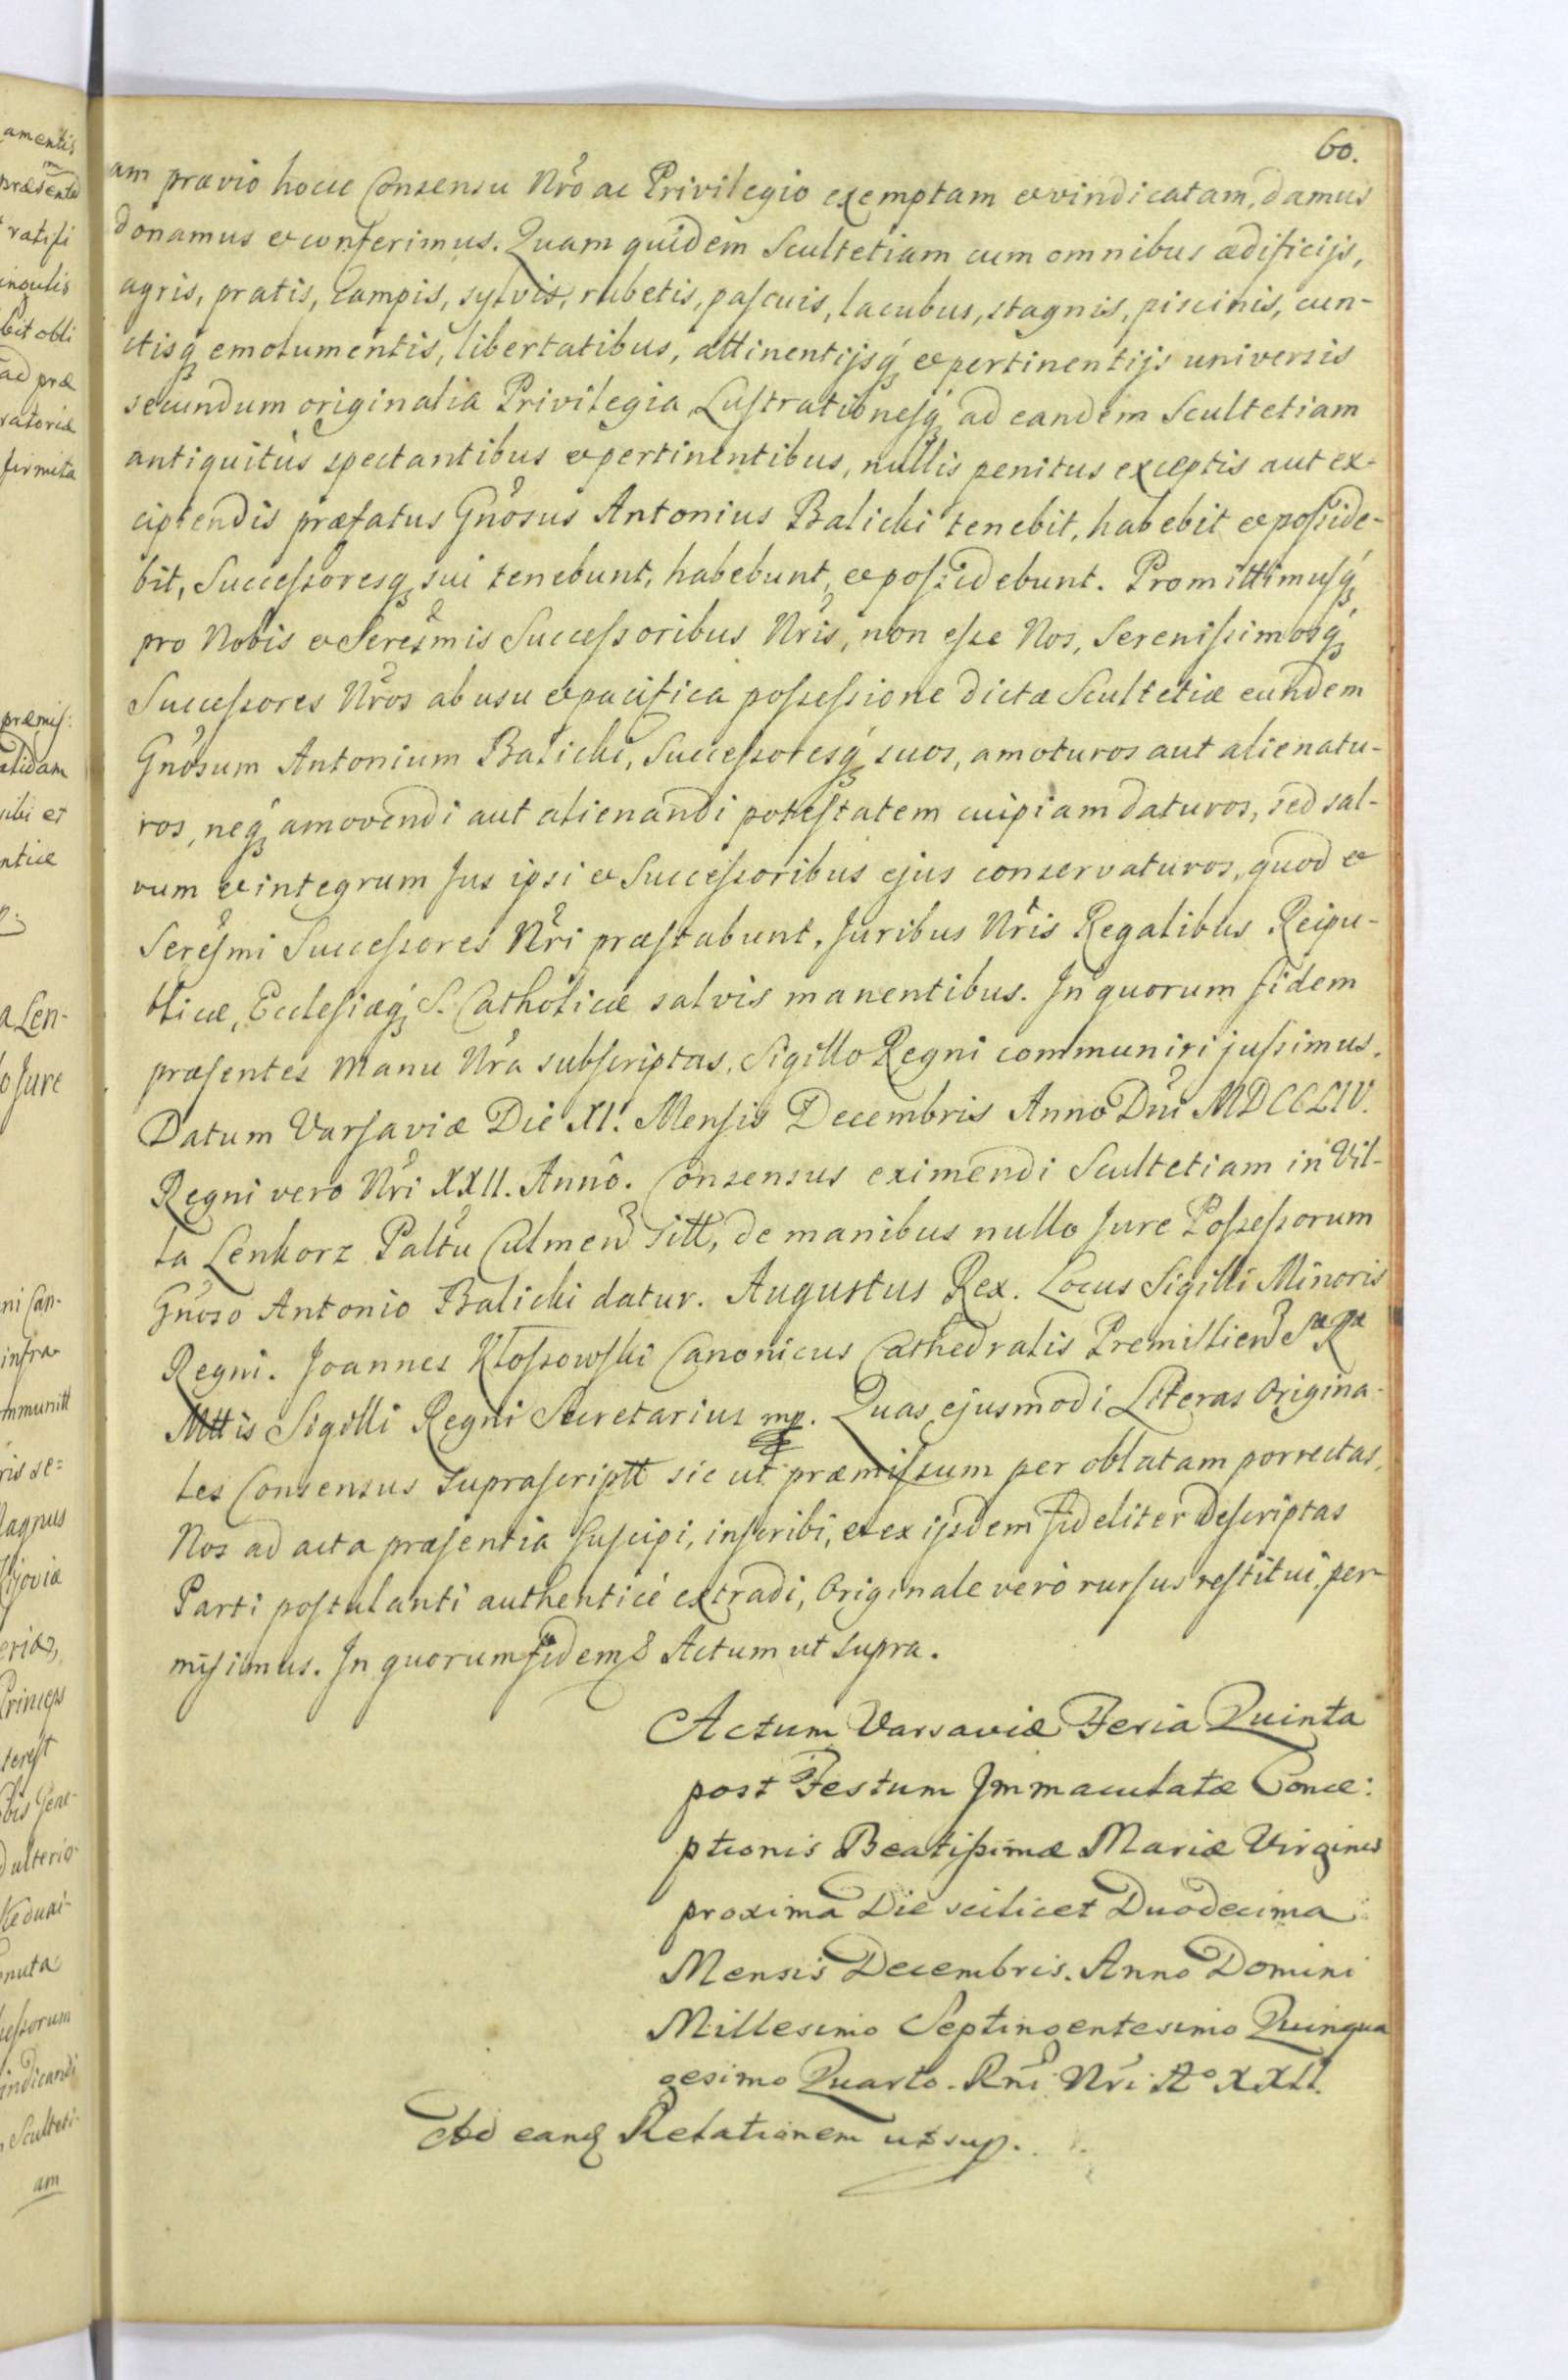 60.
am prævio hocce Consensu Nrõ ac Privilegio exemptam et vindicatam, damus
donamus et conferimus. Quam quidem Scultetiam cum omnibus ædificijs,
agris, pratis, Campis, sylvis, rubetis, pascuis, lacubus, stagnis, piscinis, cun-
ctisq emolumentis, libertatibus, attinentijsq et pertinentijs universis
secundum originalia Privilegia Lustrationesq ad eandem Scultetiam
antiquitùs spectantibus et pertinentibus, nullis penitus exceptis aut ex-
cipiendis præfatus Gnõsus Antonius Balicki tenebit, habebit et posside-
bit, Successoresq sui tenebunt, habebunt, et possidebunt. Promittimusq
pro Nobis et Serẽsmis Successoribus Nrĩs, non esse Nos, Serenissimosq
Successores Nrõs ab usu et pacifica possessione dictæ Scultetiæ eundem
Gnõsum Antonium Balicki, Successoresq suos, amoturos aut alienatu-
ros, neq amovendi aut alienandi potestatem cuipiam daturos, sed sal-
vum et integrum Jus ipsi et Successoribus ejus conservaturos, quod et
Serẽsmi Successores Nrĩ præstabunt. Juribus Nrĩs Regalibus Reipu-
blicæ, Ecclesiæq S. Catholicæ salvis manentibus. In quorum fidem
præsentes Manu Nrã subscriptas, Sigillo Regni communiri jussimus.
Datum Varsaviæ Die XI. Mensis Decembris Anno Dnĩ MDCCLIV.
Regni vero Nrĩ XXII. Annô. Consensus eximendi Scultetiam in Vil-
la Lenkorz Paltũ Culmen sitt, de manibus nullo Jure Possessorum
Gnõso Antonio Balicki datur. Augustus Rex. Locus Sigilli Minoris
Regni. Joannes Kłossowski Canonicus Cathedralis Premislien Sæ Ræ
Mttis Sigilli Regni Secretarius mp. Quas ejusmodi Literas Origina-
les Consensus suprascriptt sic ut præmissum per oblatam porrectas,
Nos ad acta præsentia suscipi, inscribi, et ex ijsdem fideliter descriptas
Parti postulanti authenticè extradi, Originale verò rursus restitui, per-
misimus. In quorum fidem & Actum ut supra.
Actum Varsaviæ Feria Quinta
post Festum Immaculatæ Conce:
ptionis Beatissimæ Mariæ Virginis
proxima Die scilicet Duodecima
Mensis Decembris. Anno Domini
Millesimo Septingentesimo Quinqua
gesimo Quarto. Rnĩ Nrĩ Ao XXII.
Ad eand Relationem ut sup.
amentis
præsenta
ratifi
ingulis
bit obli
ad præ
ratoriæ
firmita
præmis:
alidam
sibi et
ntice
a Len-
o Jure
ni Can-
infra-
mmunitt
ris se=
Magnus
Kijoviæ
Princeps
terest
ulterio-
nuta
sessorum
indicandi
, Sculteti-
am